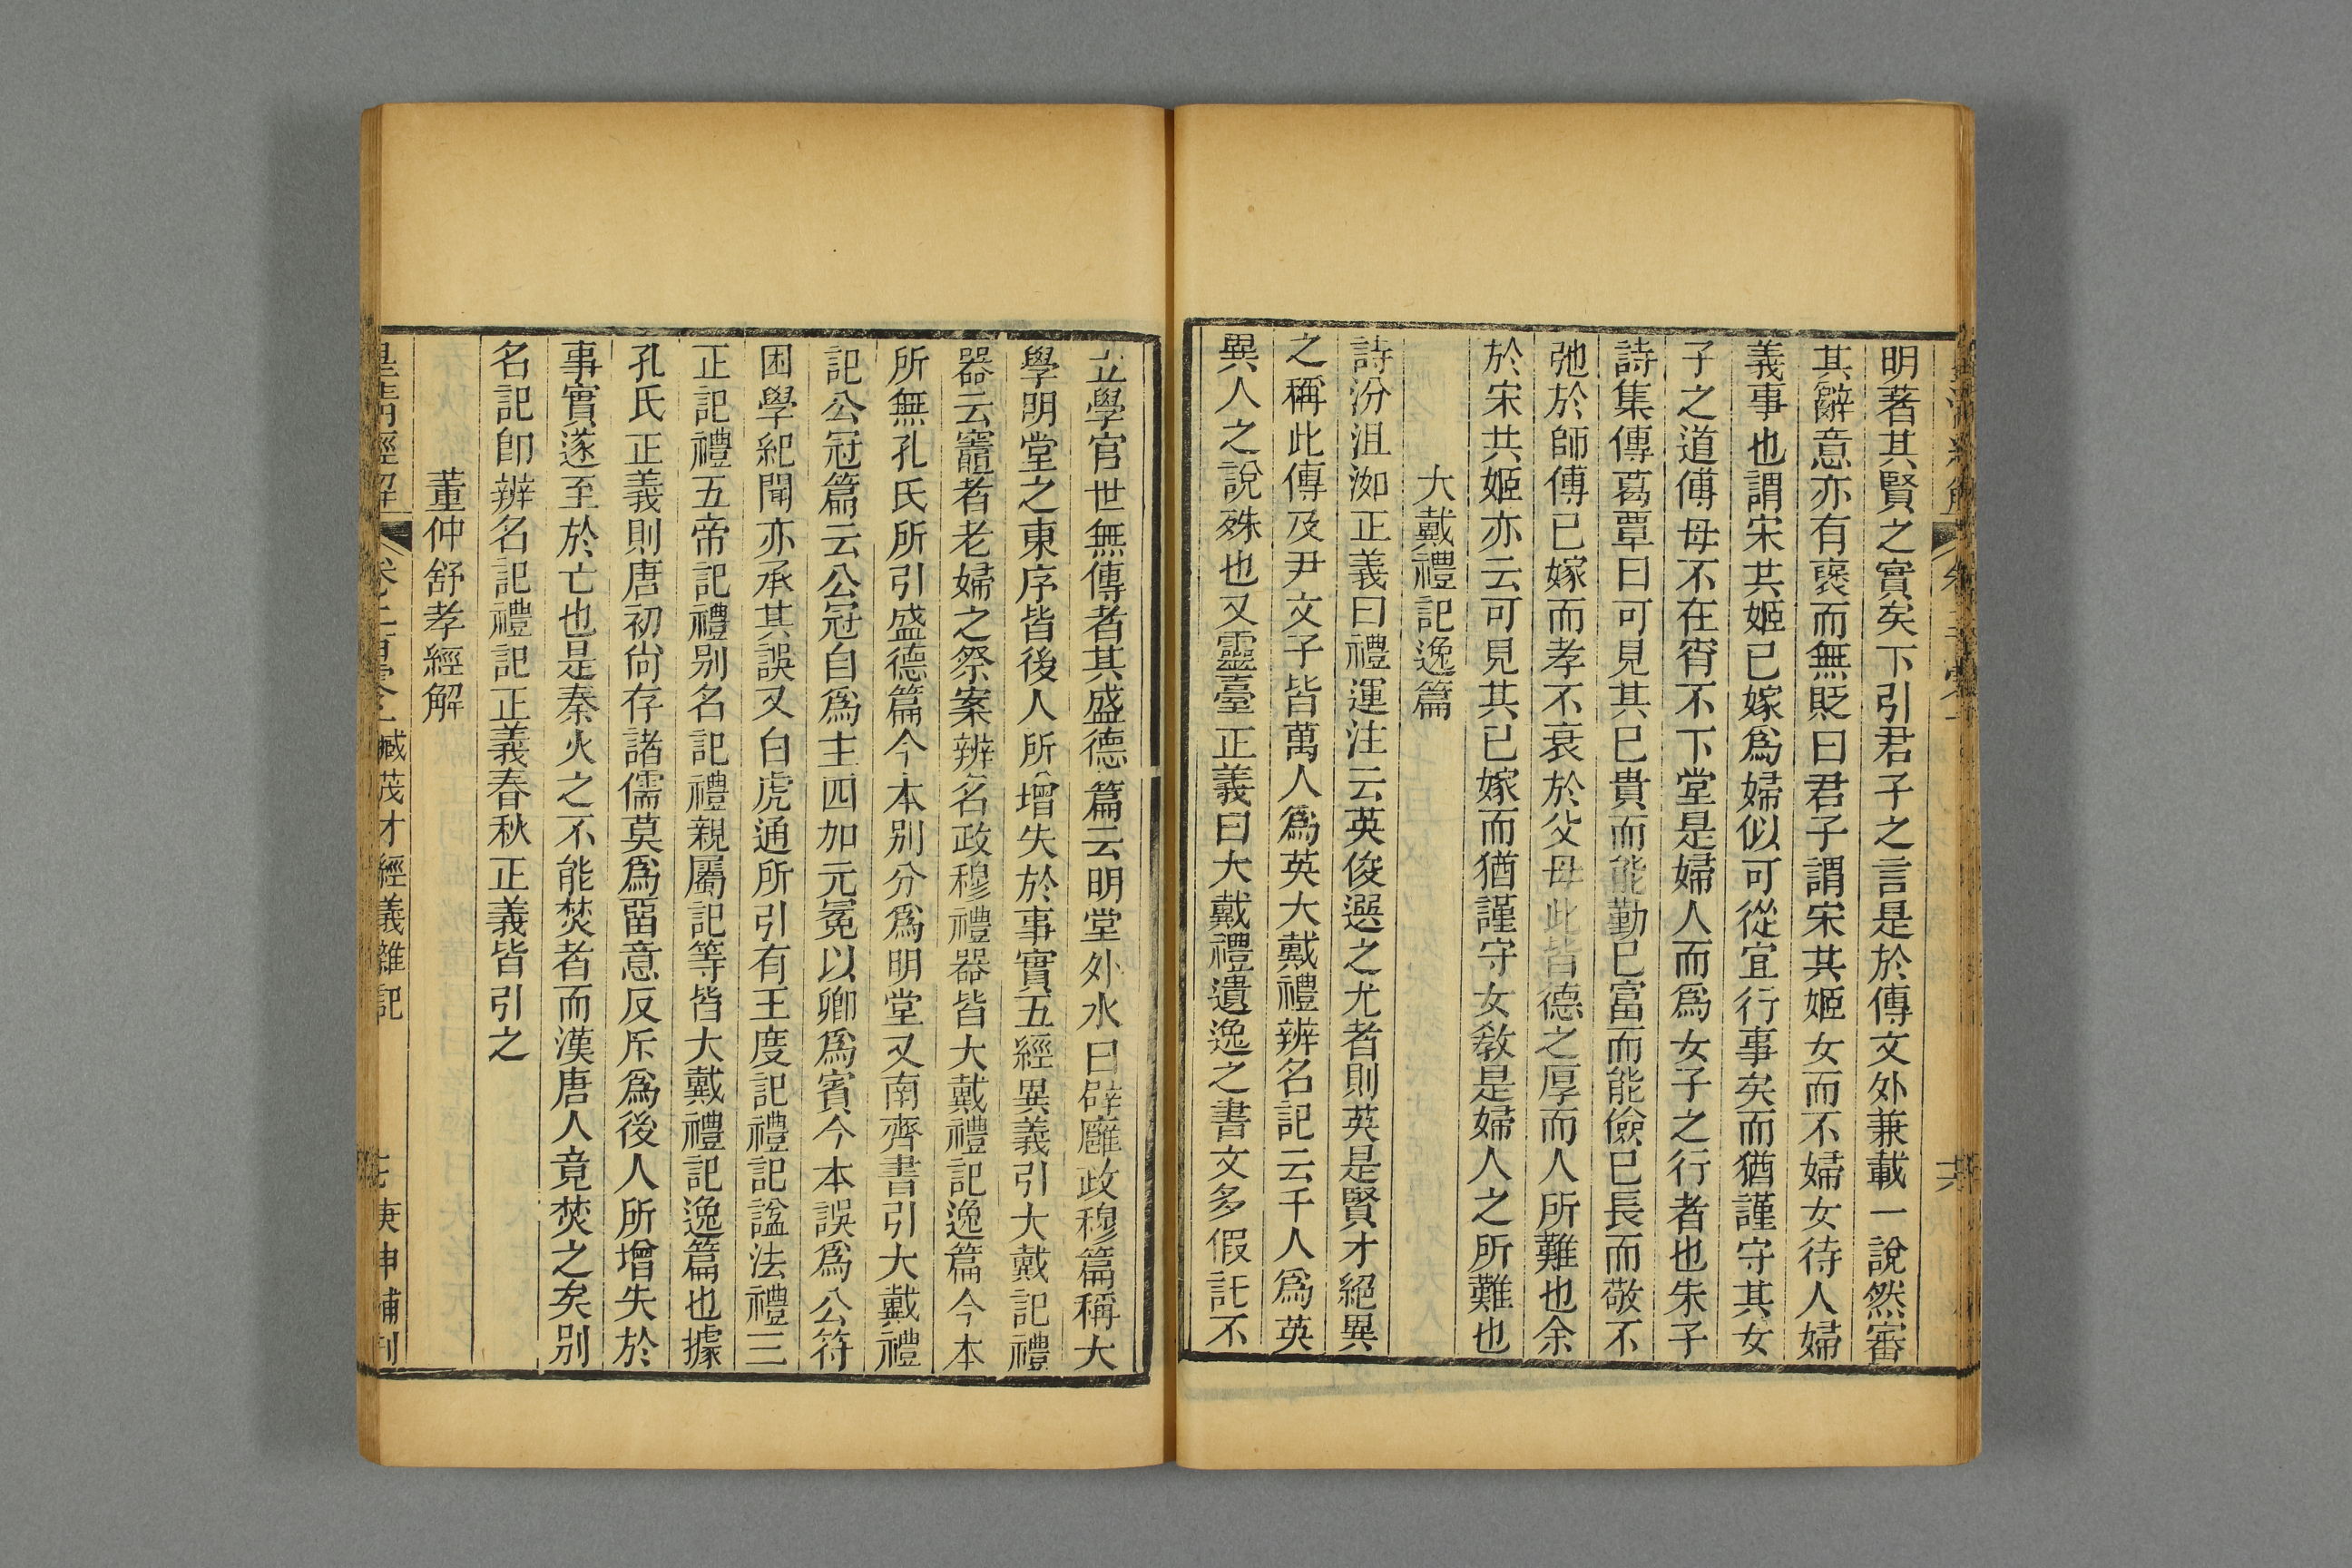 明著其賢之實矣下引君子之言是於傳文外兼載一說然審
其辭意亦有襃而無貶曰君子謂宋其姬女而不婦女待人婦
義事也謂宋共姬已嫁爲婦似可從宜行事矣而猶謹守其女
子之道傅母不在宵不下堂是婦人而爲女子之行者也朱子
詩集傳葛覃曰可見其已貴而能勤已富而能儉已長而敬不
弛於師傅已嫁而孝不衰於父母此皆德之厚而人所難也余
於宋共姬亦云可見其已嫁而猶謹守女敎是婦人之所難也
大戴禮記逸篇
詩汾沮洳正義曰禮運注云英俊選之尤者則英是賢才絕異
之稱此傳及尹文子皆萬人爲英大戴禮辨名記云千人爲英
異人之說殊也又靈臺正義曰大戴禮遺逸之書文多假託不
立學官世無傳者其盛德篇云明堂外水曰辟廱政穆篇稱大
學明堂之東序皆後人所增失於事實五經異義引大戴記禮
器云竈者老婦之祭案辨名政穆禮器皆大戴禮記逸篇今本
所無孔氏所引盛德篇今本别分爲明堂又南齊書引大戴禮
記公冠篇云公冠自爲主四加元冕以卿爲賓今本誤爲公符
困學紀聞亦承其誤又白虎通所引有王度記禮記諡法禮三
正記禮五帝記禮别名記禮親屬記等皆大戴禮記逸篇也據
孔氏正義則唐初尙存諸儒莫爲畱意反斥爲後人所增失於
事實遂至於亡也是秦火之不能焚者而漢唐人竟焚之矣别
名記卽辨名記禮記正義春秋正義皆引之
董仲舒孝經解
皇淸經解 卷二百 臧茂才經義雜記 庚申補刊